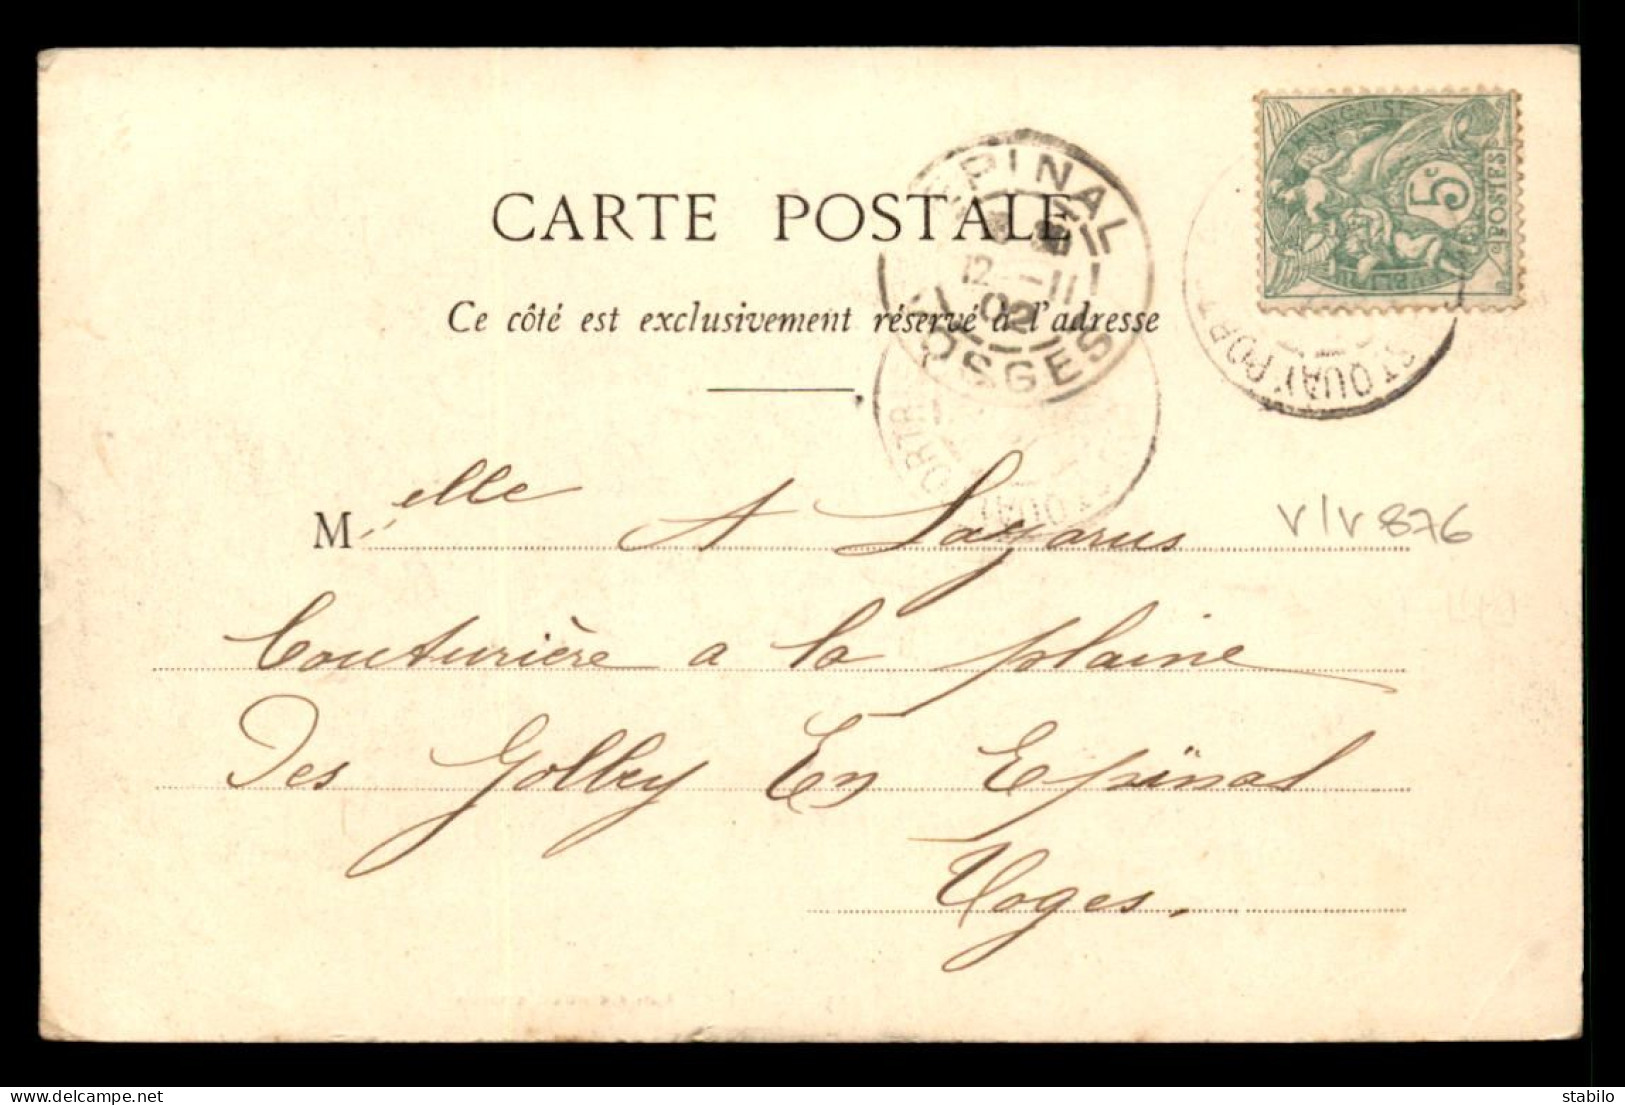 CARTE POSTALE
Ce côté est exclusivement réservé à l'adresse
EPINAL
12 -11
02
VOSGES
ST QUAY PORT
ST QUAY PORT
5c
POSTES
Melle A Lazarus
V/V 876
Couturière a la plaine
Des Golbey En Epinal
Voges.
delcampe.net
stabilo